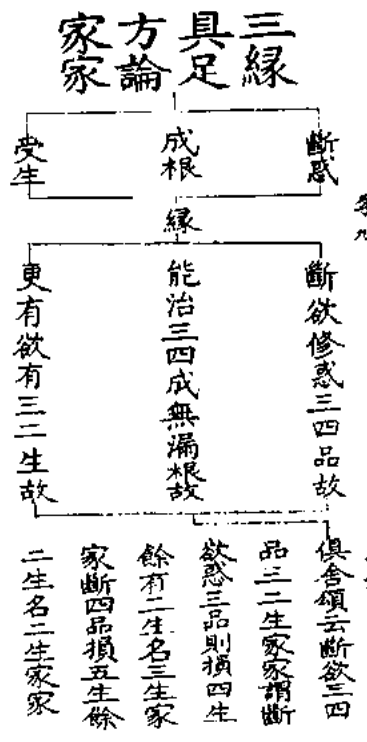 三縁
具足
方論
家家
斷惑
成根
受生
縁
斷欲修惑三四品故
能治三四成無漏根故
更有欲有三二生故
俱舍頌云斷欲三四
品三二生家家謂斷
欲惑三品則損四生
餘有二生名三生家
家斷四品損五生餘
二生名二生家家